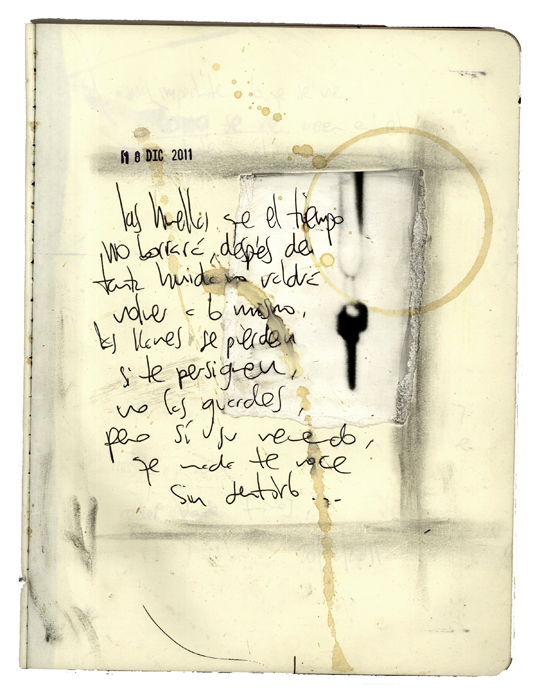 18 DIC 2011
las huellas qe el tiempo
no borrará, despes de
tanta huida no valdrá
volver a lo mismo,
las llaves se pierden
si te persiguen,
no las guardes,
pero sí su recuerdo,
qe nada te roce
sin sentirlo...